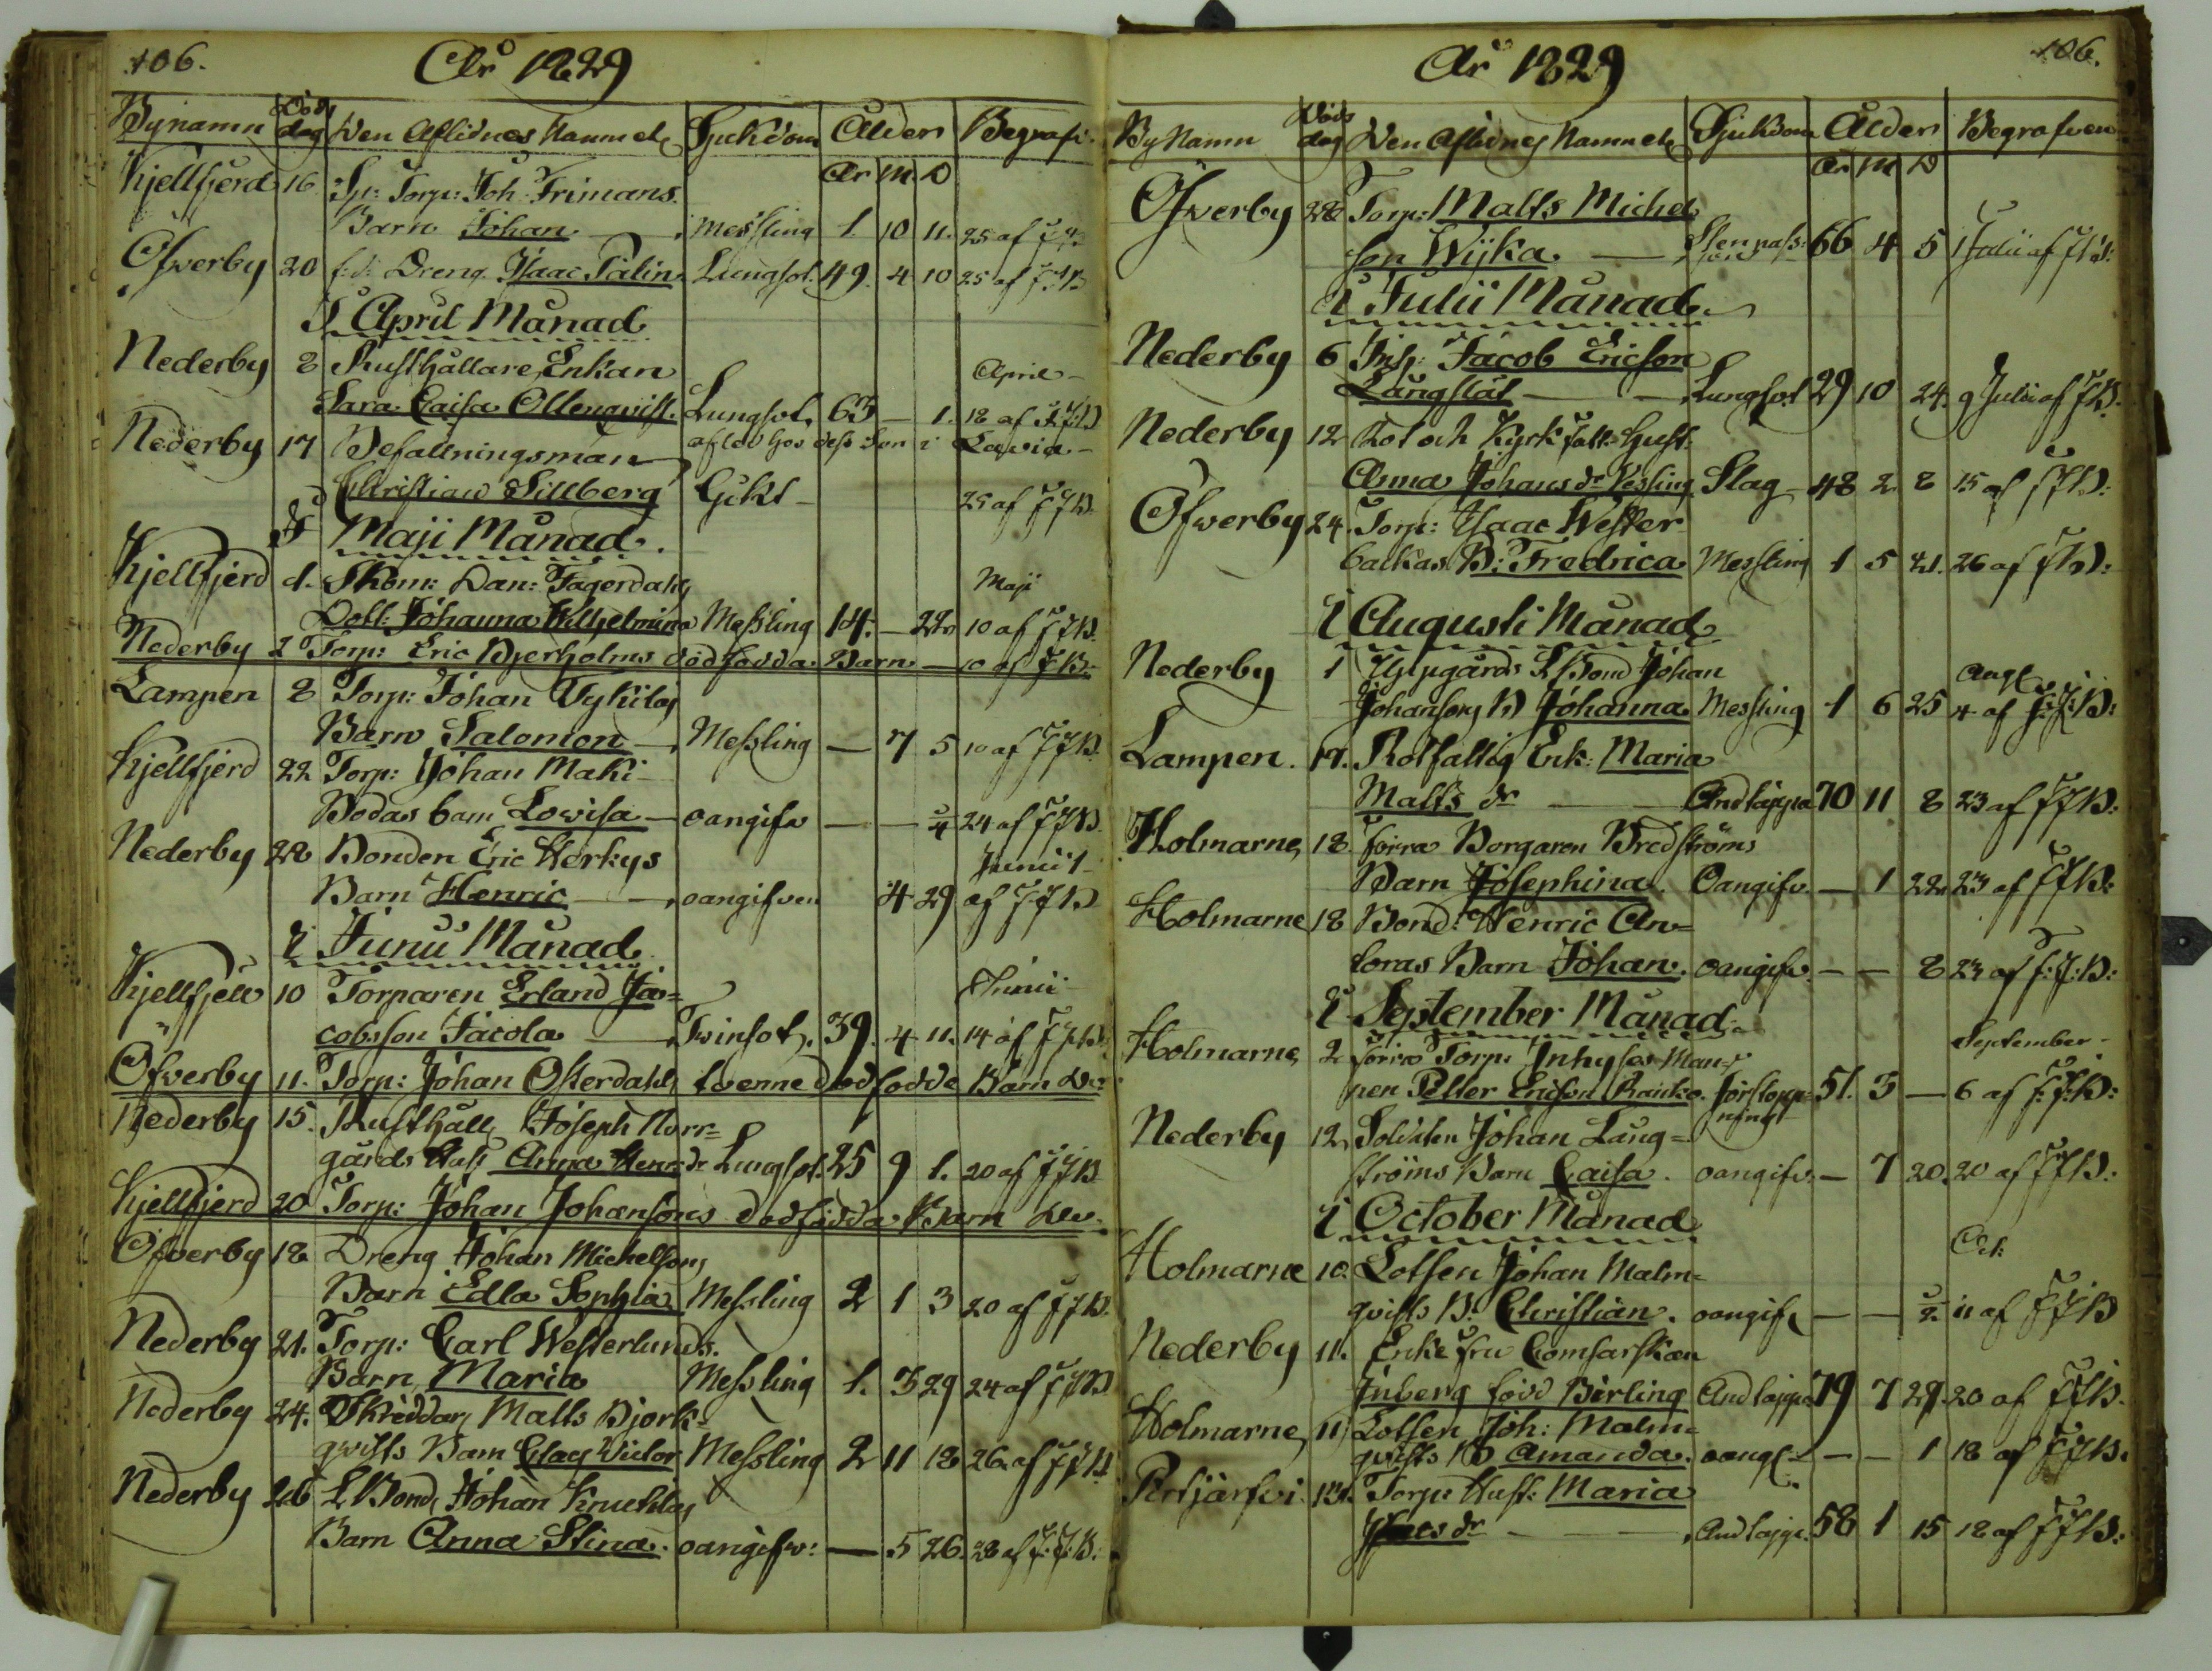 106.
År 1829
Bynamn Död dag Den Aflidnes Namn etc Sjukdom Ålder Begrafv.
År M D
Kjellfjerd 16 Sp: Torp: Joh. Frimans
Barn Johan Messling 1. 10 11. 25 af
Öfverby 20 f:d: Dreng Isaac Palin Lungsot. 49. 4 10 25 af
I April Månad
Nederby 8 Rusthållare Enkan April
Sara Caisa Ollenqvist Lungsot. 63 — 1. 18 af
Nederby 17 Befallningsman aflod hos dess Son i Lavia
Christian Sillberg Gikt 25 af
I Maji Månad.
Kjellfjerd 1. Skom: Dan: Fagerdahls Maji
Dott: Johanna Wilhelmina Messling 14. — 22. 10 af
Nederby 2 Torp: Eric Bjerholms dödfödda Barn — 10 af
Lampen 8 Torp: Johan
Barn Salomon Messling — 7 5 10 af
Kjellfjerd 22 Torp: Johan Maki
Bodas barn Lovisa — oangifv — — 24 af
Nederby 28 Bonden Eric Herkys Junii 1
Barn Henric oangifven 4 29 af
I Junii Månad
10 Torparen Erland Ja= Junii
cobsson Jacola Tvinsot. 39. 4 11. 14 af
Öfverby 11. Torp: Johan Österdahls tvenne dödfödde Barn
Nederby 15. Rusthåll: Joseph Norr=
gårds Hust Anna Henr: dr Lungsot. 25 9 1. 20 af
Kjellfjerd 20 Torp: Johan Johansons dödfödda Barn
Öfverby 18 Dreng Johan Michelsons
Barn Edla Sophia Messling 2 1 3 20 af
Nederby 21. Torp: Carl Westerlunds.
Barn Maria Messling 1. 3 29 24 af
Nederby 24. Skräddar: Matts Bjork=
qvists Barn Clas Victor Messling 2 11 18 26 af
Nederby 26 L Bond: Johan
Barn Anna Stina. oangifv: — 5 26. 28 af
106.
År 1829
By Namn Död dag Den Aflidnes Namn etc Sjukdom Ålder Begrafven
År M D
Öfverby 28 Torp: Matts Michel
son Wijka 66 4 5 1 Julii af
I Julii Månad
Nederby 6 Inh: Jacob Ericson
Långstat Lungsot 29 10 24. 9 Julii af
Nederby 12
Anna Johans dr Kessling Slag 48 2 8 15 af
Öfverby 24. Torp: Isaac Wester
backas B: Fredrica Messling 1 5 21. 26 af
I Augusti Månad
Nederby 1 Uppgårds L Bond Johan Aug
Johansons B Johanna Messling 1 6 25 4 af
Lampen. 17. Rotfattig Enk: Maria
Matts dr Andtäppa 70 11 8 23 af
Holmarne 18 förra Borgaren Bredströms
Barn Josephina. Oangifv. — 1 22. 23 af
Holmarne 18 Bond: Henric An=
toras Barn Johan. oangifv. — — 8 23 af
I September Månad.
Holmarne 2 förra Torp: Inhyses Man= September
nen Petter Ericson Ranko. förstopp= 51. 3 — 6 af
ning
Nederby 12 Soldaten Johan Lång=
ströms Barn Caisa. oangifv. — 7 20. 20 af
I October Månad
Holmarne 10. Lotsen Johan Malm= Oct:
qvists B: Christian. oangif — — 11 af
Nederby 11. Enke Fru Comsarskan
Inberg född Birling Andtäppa 79 7 27. 20 af
Holmarne 11 Lotsen Joh: Malm=
qvists B Amanda. oangf — — 1 18 af
Pertjärfvi 13. Torp: Hust: Maria
dr Andtäppa. 58 1 15 18 af